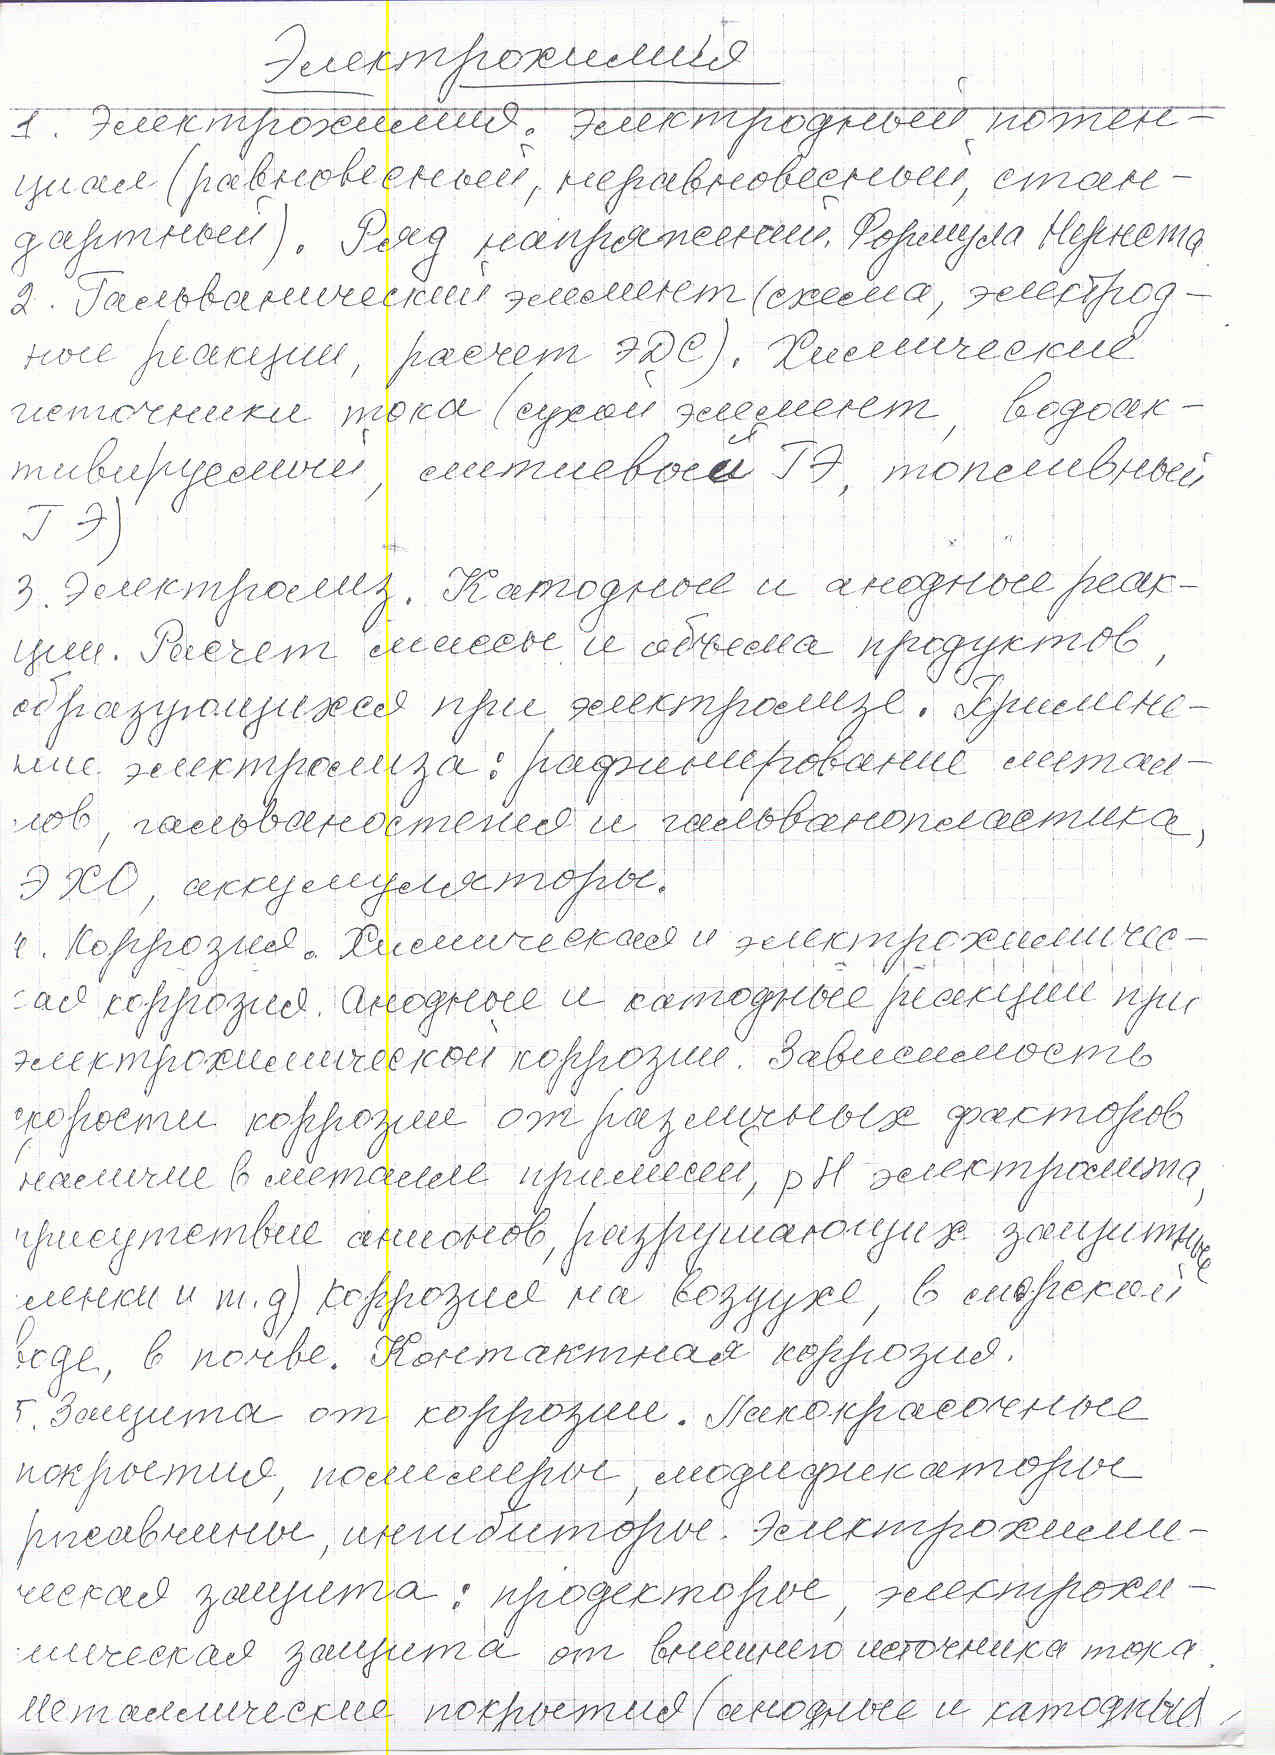 Электрохимия
1. Электрохимия. Электродный потен-
циал (равновесный, неравновесный, стан-
дартный). Ряд напряжений. Формула Нернста
2. Гальванический элемент (схема, электрод-
ные реакции, расчет ЭДС). Химические
источники тока (сухой элемент, водоак-
тивируемый, литиевый ГЭ, топливный
ГЭ)
3. Электролиз. Катодные и анодные реак-
ции. Расчет массы и объема продуктов,
образующихся при электролизе. Примене-
ние электролиза: рафинирование метал-
лов, гальваностегия и гальванопластика,
ЭХО, аккумуляторы.
4. Коррозия. Химическая и электрохимичес-
кая коррозия. Анодные и катодные реакции при
электрохимической коррозии. Зависимость
скорости коррозии от различных факторов
(наличие в металле примесей, pH электролита,
присутствие анионов, разрушающих защитные
пленки и т.д) Коррозия на воздухе, в морской
воде, в почве. Контактная коррозия.
5. Защита от коррозии. Лакокрасочные
покрытия, полимеры, модификаторы
ржавчины, ингибиторы. Электрохими-
ческая защита: продекторы, электрохи-
мическая защита от внешнего источника тока.
Металлические покрытия (анодные и катодные)